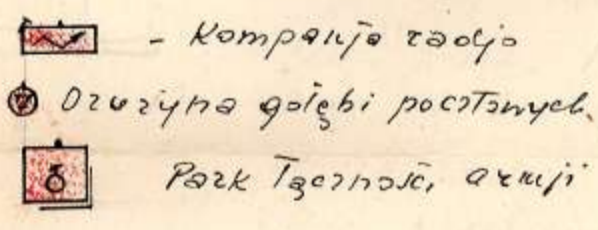 - Kompanja radjo
Drużyna gołębi pocztowych.
Park Łączności armji